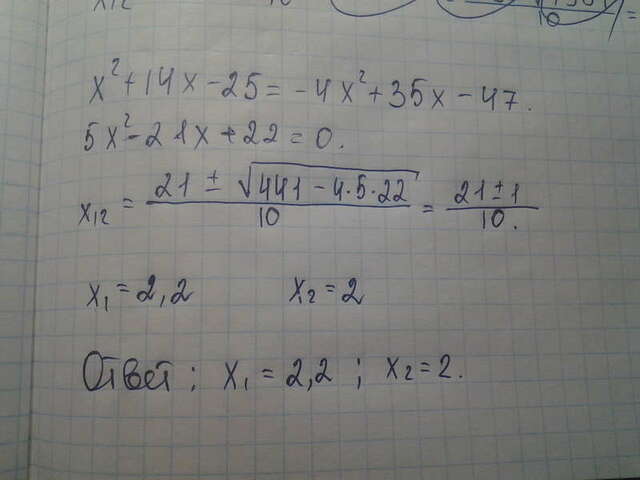 x² + 14x - 25 = -4x² + 35x - 47.
5x² - 21x + 22 = 0.
x₁₂ = (21 ± √(441 - 4·5·22))/10 = (21 ± 1)/10.
x₁ = 2,2 x₂ = 2
Ответ: x₁ = 2,2 ; x₂ = 2.